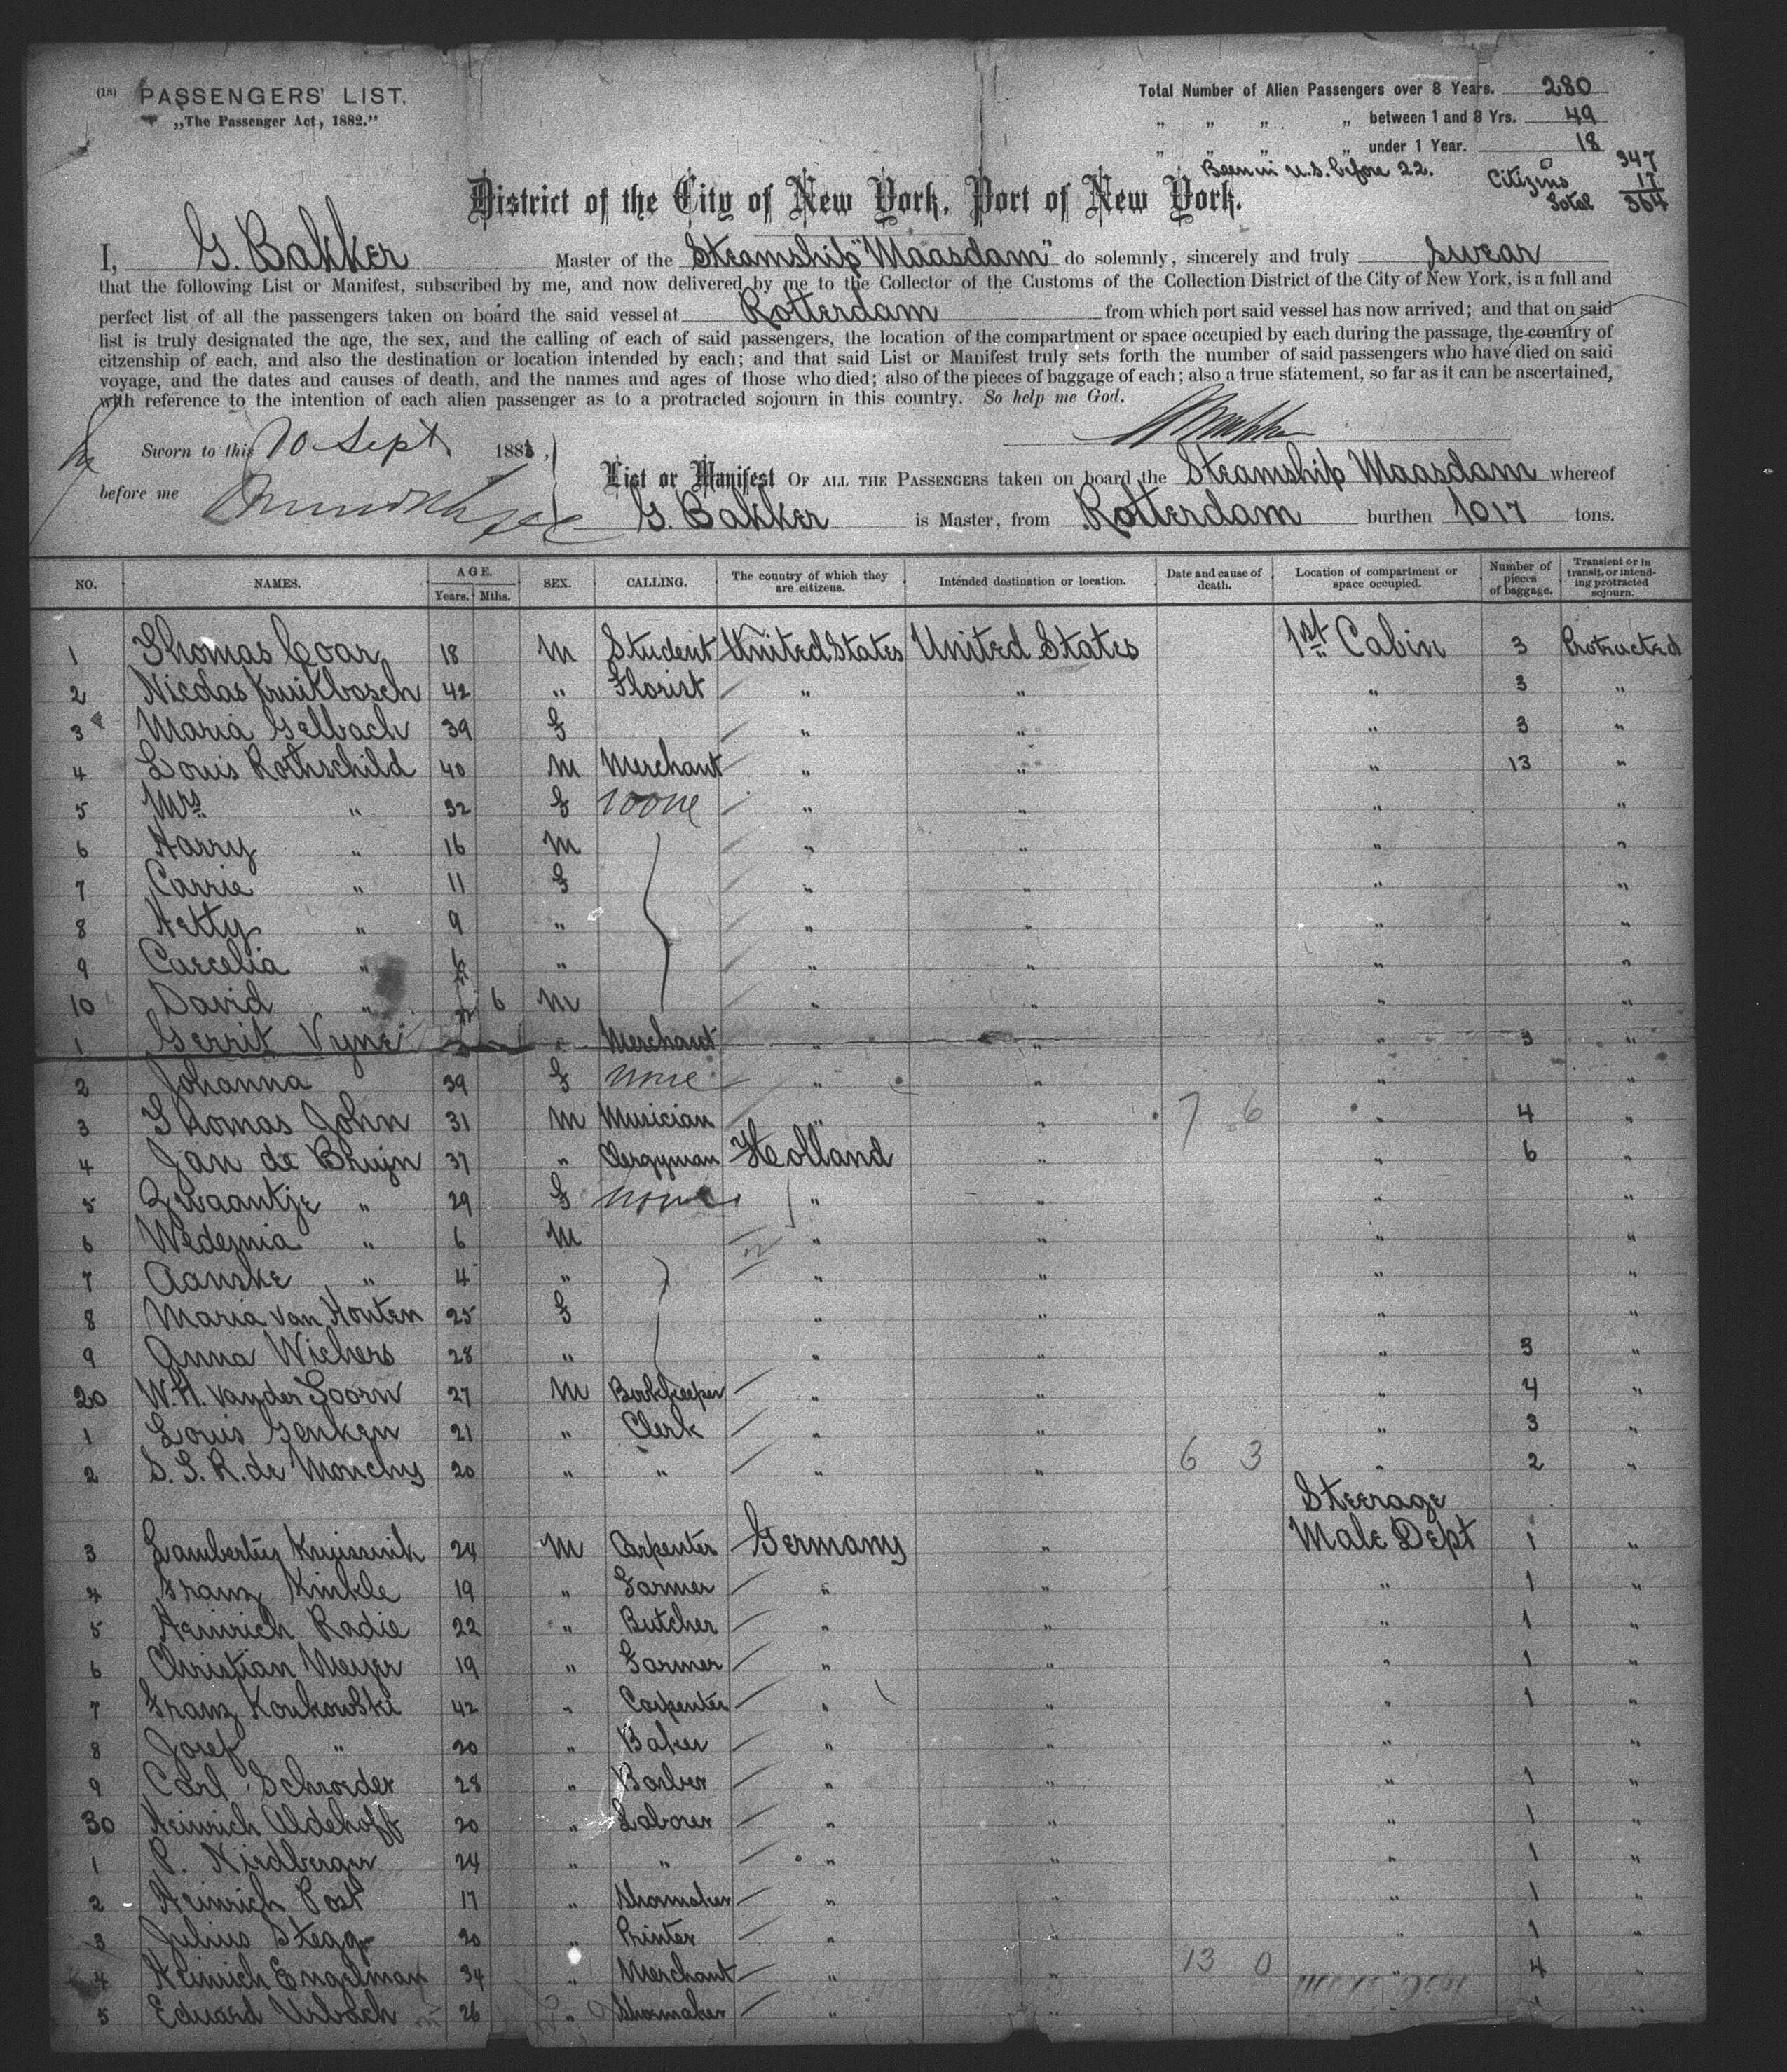 (18) PASSENGERS' LIST.
„The Passenger Act, 1882."
Total Number of Alien Passengers over 8 Years. 280
„ „ „ „ between 1 and 8 Yrs. 49
„ „ „ „ under 1 Year. 18
Been in U.S. before 22. Citizens 0 347
17
Total 364
District of the City of New York, Port of New York.
I, G. Bakker Master of the Steamship "Maasdam" do solemnly, sincerely and truly swear
that the following List or Manifest, subscribed by me, and now delivered by me to the Collector of the Customs of the Collection District of the City of New York, is a full and
perfect list of all the passengers taken on board the said vessel at Rotterdam from which port said vessel has now arrived; and that on said
list is truly designated the age, the sex, and the calling of each of said passengers, the location of the compartment or space occupied by each during the passage, the country of
citzenship of each, and also the destination or location intended by each; and that said List or Manifest truly sets forth the number of said passengers who have died on said
voyage, and the dates and causes of death, and the names and ages of those who died; also of the pieces of baggage of each; also a true statement, so far as it can be ascertained,
with reference to the intention of each alien passenger as to a protracted sojourn in this country. So help me God.
Sworn to this 10 Sept 188
before me
List or Manifest OF ALL THE PASSENGERS taken on board the Steamship Maasdam whereof
G. Bakker is Master, from Rotterdam burthen 1017 tons.
NO. NAMES. AGE. Years. Mths. SEX. CALLING. The country of which they are citizens. Intended destination or location. Date and cause of death. Location of compartment or space occupied. Number of pieces of baggage. Transient or in transit, or intending protracted sojourn.
1 Thomas Coar 18 M Student United States United States 1st Cabin 3 Protracted
2 Nicolas Kruikbosch 42 " Florist " " " 3 "
3 Maria Gelbach 39 F " " " 3 "
4 Louis Rothschild 40 M Merchant " " " 13 "
5 Mrs " 32 F none " " " "
6 Harry " 16 M " " " "
7 Carrie " 11 F " " " "
8 Hetty " 9 " " " " "
9 Carcelia " 6 " " " " "
10 David " 6 M " " " "
1 Gerrit " Merchant " " " 3 "
2 Johanna 39 F none " " " "
3 Thomas John 31 M Musician " " 7 6 " 4 "
4 Jan de Bruijn 37 " Clergyman Holland " " 6 "
5 Zwaantje " 29 F none " " " "
6 " 6 M " " " "
7 Aanske " 4 " " " " "
8 Maria van Houten 25 F " " " "
9 Anna Wichers 28 " " " " 3 "
20 W.H. van der Toorn 27 M Bookkeeper " " " 4 "
1 Louis Genken 21 " Clerk " " " 3 "
2 S. G. R. de Monchy 20 " " " " 6 3 " 2 "
Steerage
3 Lambertus 24 M Carpenter Germany " Male Dept 1 "
4 Franz Kinkle 19 " Farmer " " " 1 "
5 Heinrich Radie 22 " Butcher " " " 1 "
6 Christian Meyer 19 " Farmer " " " 1 "
7 Franz Konkowski 42 " Carpenter " " " 1 "
8 Josef " 20 " Baker " " " "
9 Carl Schroeder 28 " Barber " " " 1 "
30 Heinrich Aldehoff 20 " Laborer " " " 1 "
1 P. Niedberger 24 " " " " " 1 "
2 Heinrich Post 17 " Shoemaker " " " 1 "
3 Julius 20 " Printer " " " 1 "
4 Heinrich Engelman 34 " Merchant " " 13 0 " 4 "
5 Eduard Urbach 26 " Shoemaker " " " "